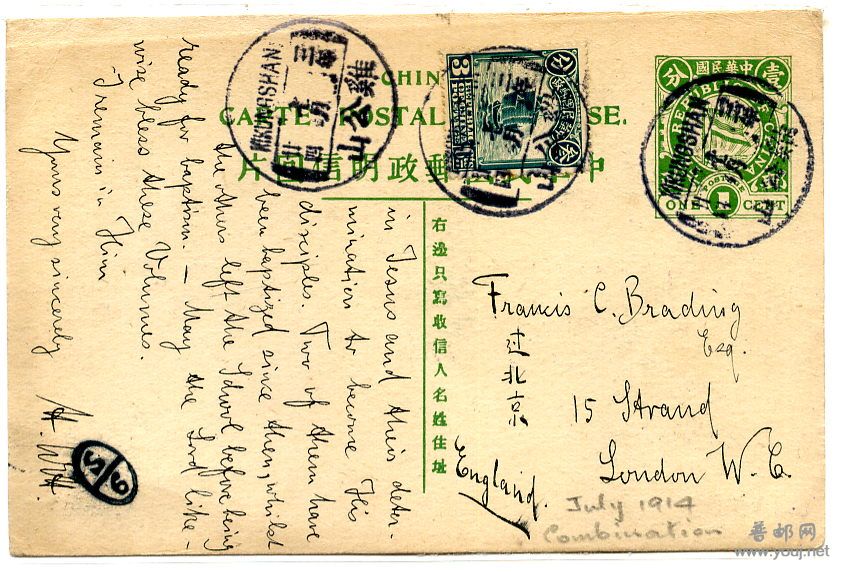 CHIN
CARTE POSTAL SE.
中 郵政明信回片
中華民國
壹
分
REPUBLIC OF CHINA
POSTAGE
ONE 1 CENT
3
分
叁
KIKUNGSHAN
雞公山
KIKUNGSHAN
右邊只寫收信人名姓住址
Francis C. Brading
Esq.
过北京
15 Strand
London W.C.
England.
July 1914
Combination
in Jesus and their deter-
mination to become His
disciples. Two of them have
been baptized since then, whilst
the others left the School before being
ready for baptism. — May the Lord like-
wise bless these Volumes.
I remain in Him
Yours very sincerely
普邮网
www.youj.net